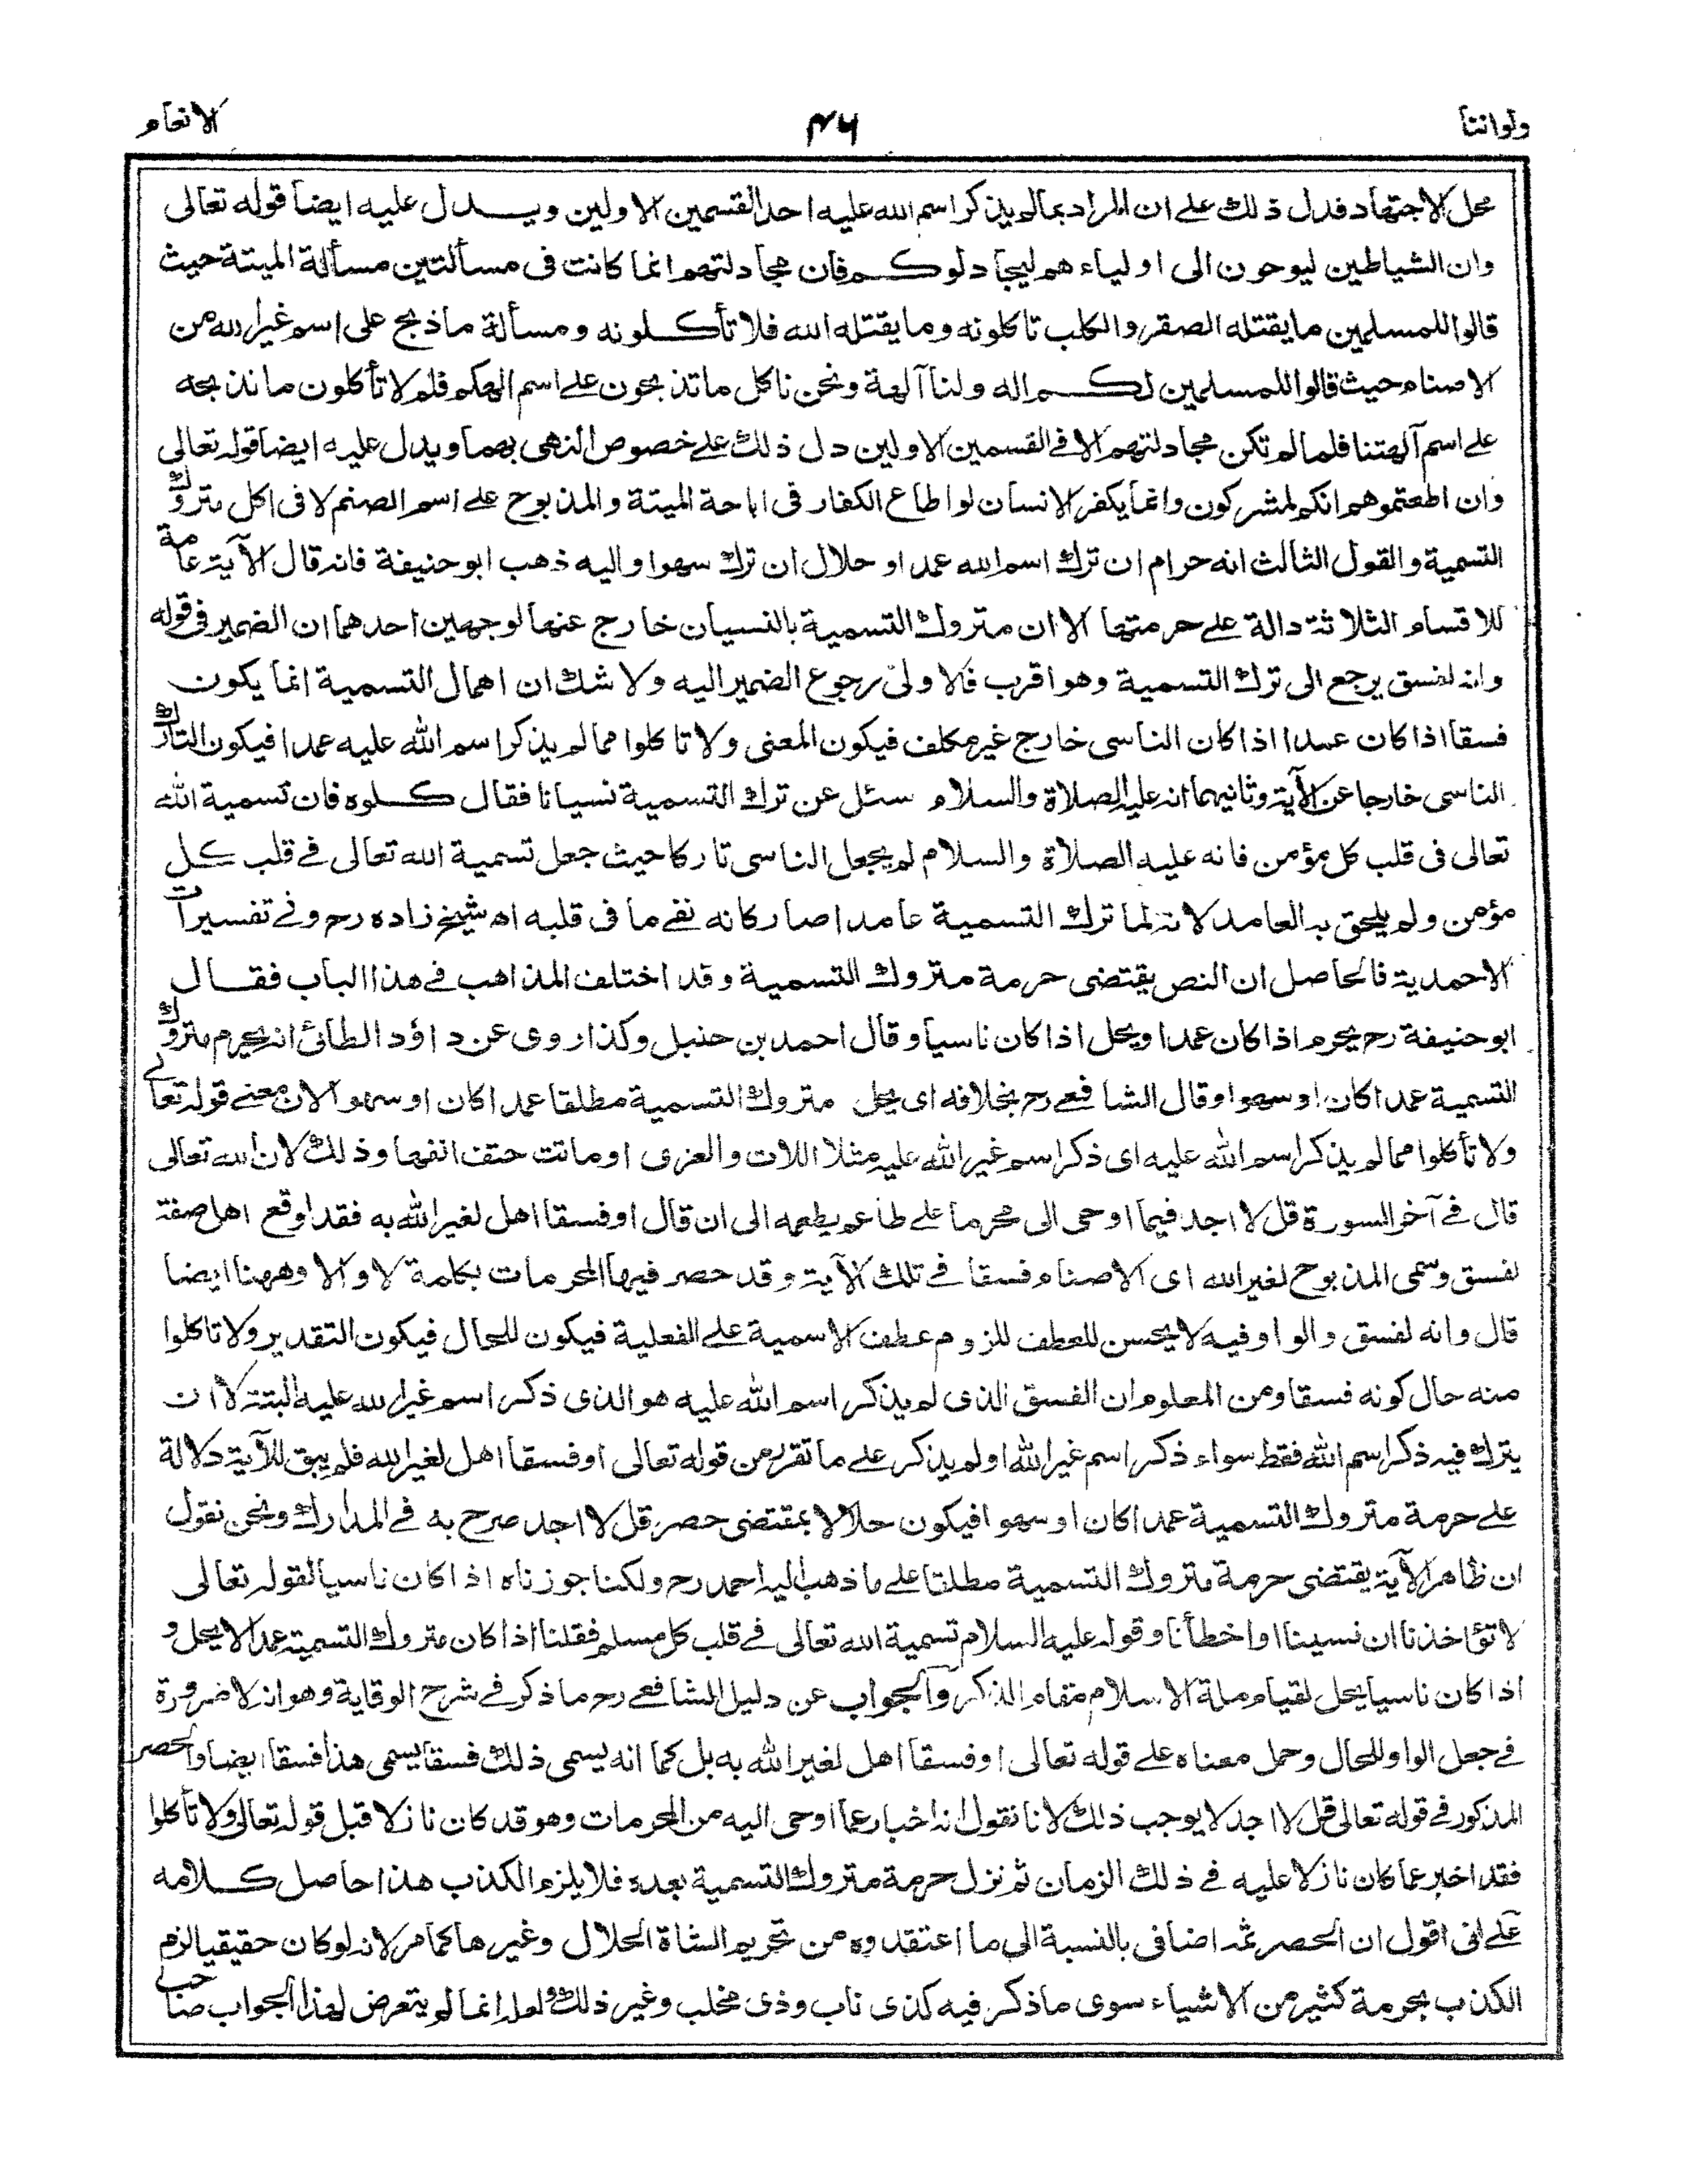 ولواننا
٤٦
الانعام
محل الاجتهاد فدل ذلك على ان المراد بمالم يذكر اسم الله عليه احد القسمين الاولين ويدل عليه ايضا قوله تعالى
وان الشياطين ليوحون الى اولياءهم ليجادلوكم فان مجادلتهم انما كانت فى مسألتين مسألة الميتة حيث
قالوا للمسلمين ما يقتله الصقر والكلب تاكلونه وما يقتله الله فلا تأكلونه ومسألة ما ذبح على اسم غير الله من
الاصنام حيث قالوا للمسلمين لكم اله ولنا آلهة ونحن ناكل ما تذبحون على اسم الهكم فلم لا تأكلون ما نذبحه
على اسم آلهتنا فلما لم تكن مجادلتهم الا فى القسمين الاولين دل ذلك على خصوص النهى بهما ويدل عليه ايضا قوله تعالى
وان اطعتموهم انكم لمشركون وانما يكفر الانسان لو اطاع الكفار فى اباحة الميتة والمذبوح على اسم الصنم لا فى اكل متروك
التسمية والقول الثالث انه حرام ان ترك اسم الله عمدا و حلال ان ترك سهوا واليه ذهب ابو حنيفة فانه قال الآية عامة
للاقسام الثلاثة دالة على حرمتها الا ان متروك التسمية بالنسيان خارج عنها لوجهين احدهما ان الضمير فى قوله
وانه لفسق يرجع الى ترك التسمية وهو اقرب فالاولى رجوع الضمير اليه ولا شك ان اهمال التسمية انما يكون
فسقا اذا كان عمدا اذا كان الناسى خارج غير مكلف فيكون المعنى ولا تاكلوا مما لم يذكر اسم الله عليه عمدا فيكون التارك
الناسى خارجا عن الآية وثانيهما انه عليه الصلاة والسلام سئل عن ترك التسمية نسيانا فقال كلوه فان تسمية الله
تعالى فى قلب كل مؤمن فانه عليه الصلاة والسلام لم يجعل الناسى تاركا حيث جعل تسمية الله تعالى فى قلب كل
مؤمن ولم يلحق به العامد لانه لما ترك التسمية عامدا صار كانه نفى ما فى قلبه اه شيخ زاده رح وفى تفسيرات
الاحمدية فالحاصل ان النص يقتضى حرمة متروك التسمية وقد اختلف المذاهب فى هذا الباب فقال
ابو حنيفة رح يحرم اذا كان عمدا ويحل اذا كان ناسيا وقال احمد بن حنبل وكذا روى عن داؤد الطائى انه يحرم متروك
التسمية عمدا كان او سهوا وقال الشافعى رح بخلافه اى يحل متروك التسمية مطلقا عمدا كان او سهوا لان معنى قوله تعالى
ولا تأكلوا مما لم يذكر اسم الله عليه اى ذكر اسم غير الله عليه مثلا اللات والعزى او ماتت حتف انفها وذلك لان الله تعالى
قال فى آخر السورة قل لا اجد فيما اوحى الى محرما على طاعم يطعمه الى ان قال او فسقا اهل لغير الله به فقد اوقع اهل صفة
لفسق وسمى المذبوح لغير الله اى الاصنام فسقا فى تلك الآية وقد حصر فيها المحرمات بكلمة لا والا وههنا ايضا
قال وانه لفسق والواو فيه لا يحسن للعطف للزوم عطف الاسمية على الفعلية فيكون للحال فيكون التقدير ولا تاكلوا
منه حال كونه فسقا ومن المعلوم ان الفسق الذى لم يذكر اسم الله عليه هو الذى ذكر اسم غير الله عليه البتة لا ان
يترك فيه ذكر اسم الله فقط سواء ذكر اسم غير الله او لم يذكر على ما تقرر من قوله تعالى او فسقا اهل لغير الله فلم يبق للآية دلالة
على حرمة متروك التسمية عمدا كان او سهوا فيكون حلالا بمقتضى حصر قل لا اجد صرح به فى المدارك ونحن نقول
ان ظاهر الآية يقتضى حرمة متروك التسمية مطلقا على ما ذهب اليه احمد رح ولكنا جوزناه اذا كان ناسيا لقوله تعالى
لا تؤاخذنا ان نسينا او اخطأنا وقوله عليه السلام تسمية الله تعالى فى قلب كل مسلم فقلنا اذا كان متروك التسمية عمدا لا يحل و
اذا كان ناسيا يحل لقيام ملة الاسلام مقام الذكر والجواب عن دليل الشافعى رح ما ذكر فى شرح الوقاية وهو انه لا ضرورة
فى جعل الواو للحال وحمل معناه على قوله تعالى او فسقا اهل لغير الله به بل كما انه يسمى ذلك فسقا يسمى هذا فسقا ايضا والحصر
المذكور فى قوله تعالى قل لا اجد لا يوجب ذلك لانا نقول انه اخبار عما اوحى اليه من المحرمات وهو قد كان نازلا قبل قوله تعالى ولا تأكلوا
فقد اخبر عما كان نازلا عليه فى ذلك الزمان ثم نزل حرمة متروك التسمية بعده فلا يلزم الكذب هذا حاصل كلامه
على انى اقول ان الحصر ثمه اضافى بالنسبة الى ما اعتقدوه من تحريم الشاة الحلال وغيرها كما مر لانه لو كان حقيقيا لزم
الكذب بحرمة كثير من الاشياء سوى ما ذكر فيه كذى ناب وذى مخلب وغير ذلك ولعله انما لم يتعرض لهذا الجواب صاحب